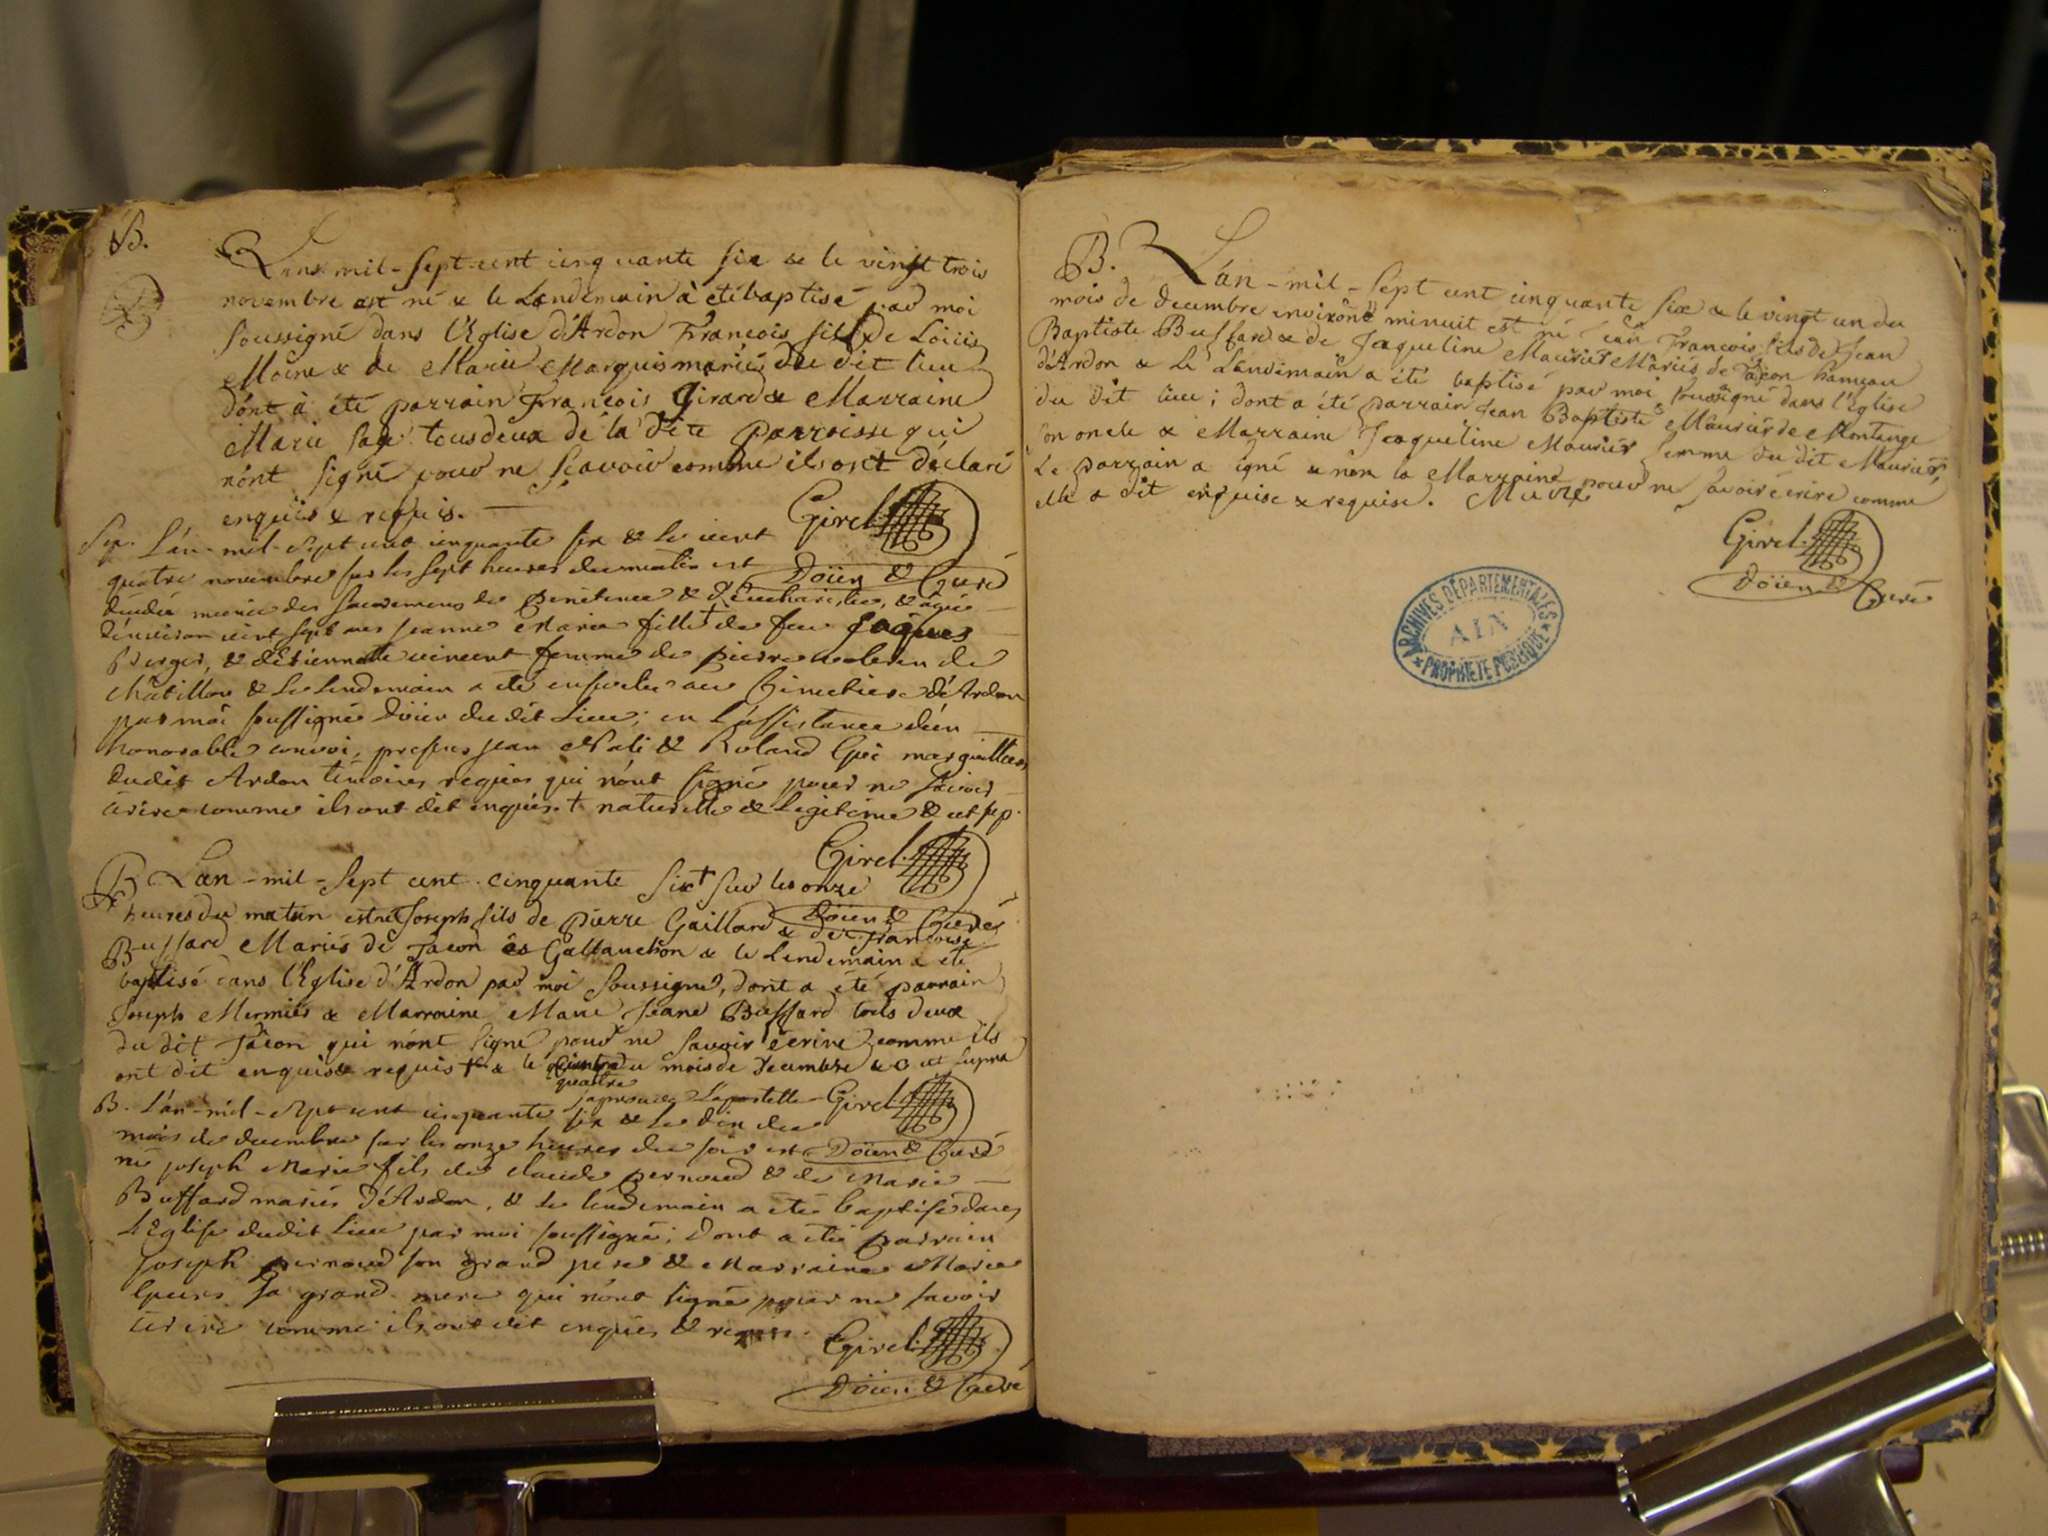 B.
L'an mil-sept-cent cinquante six & le vingt trois
novembre est né & le Landemain à eté baptisé par moi
soussigné dans l'Eglise d'Ardon François fils de Loüis
Moine & de Marie Marquis mariés du dit lieu
dónt à été parrain François Girard & Marraine
Marie tous deux de la dite parroisse qui
nónt signé pour ne sçavoir comme ils ont déclaré
enquis & requis.
Girel
Doïen & Curé
Sep. L'án-mil-sept cent cinquante six & le vint
quatre novembre sur les sept heures du matin est
décédée munie des sacremens de penitence & d'Eucharistie, & agée
d'environ vint sept ans jeanne Marie fille † de feu jâques
Berger, & d'Etiennette vincent femme de pierre de
châtillon & le lendemain a été ensevelie au Cimetiere d'Ardon
par moi soussigné Doïen du dit Lieu; en l'assistance d'un
honorable convoi, presens jean & Roland marguilliers
dudit Ardon témoins requis qui nónt signé pour ne savoir
écrire comme ils ont dit enquis. † naturelle & legitime & ut sup.
Girel
Doïen & Curé
B. L'an-mil-sept cent-cinquante six† sur les onze
heures du matin est né Joseph fils de Pierre Gaillard & de Françoise
Buffard Mariés de Tacon & le Lendemain a été
baptisé dans l'Eglise d'Ardon par moi soussigné, dont a été parrain
Joseph Mermiés & Marraine Marie Jeane Buffard touls deux
du dit Tacon qui nónt signé pour ne savoir écrire comme ils
ont dit enquis & requis † & le du mois de decembre ut supra
quatre
j'aprouve L'apostelle
Girel
Doïen & Curé
B. L'án-mil-sept cent cinquante six & le dix du
mois de decembre sur les onze heures du soir est
né joseph Marie fils de claude pernoud & de Marie
Buffard mariés d'Ardon, & le lendemain a été baptisé dans
l'Eglise dudit lieu par moi soussigné; dont a été parrain
Joseph pernoud son grand pere & Marraine Marie
sa grand-mere qui nónt signé pour ne savoir
écrire comme ils ont dit enquis & requis.
Girel
Doïen & Curé
B. L'án-mil-sept cent cinquante six & le vingt un du
mois de decembre environ minuit est né Jean François fils de Jean
Baptiste Buffard & de Jaqueline Maurier Mariés de Tacon hameau
d'Ardon & le Landemain a été baptisé par moi soussigné dans l'Eglise
du dit lieu; dont a été parrain Jean Baptiste Maurier de Montange
son oncle & Marraine Jaqueline Maurier femme du dit Maurier,
Le parrain a signé & non la Marraine pour ne savoir écrire comme
elle a dit enquise & requise.
Girel
Doïen & Curé
ARCHIVES DÉPARTEMENTALES
AIN
PROPRIÉTÉ PUBLIQUE